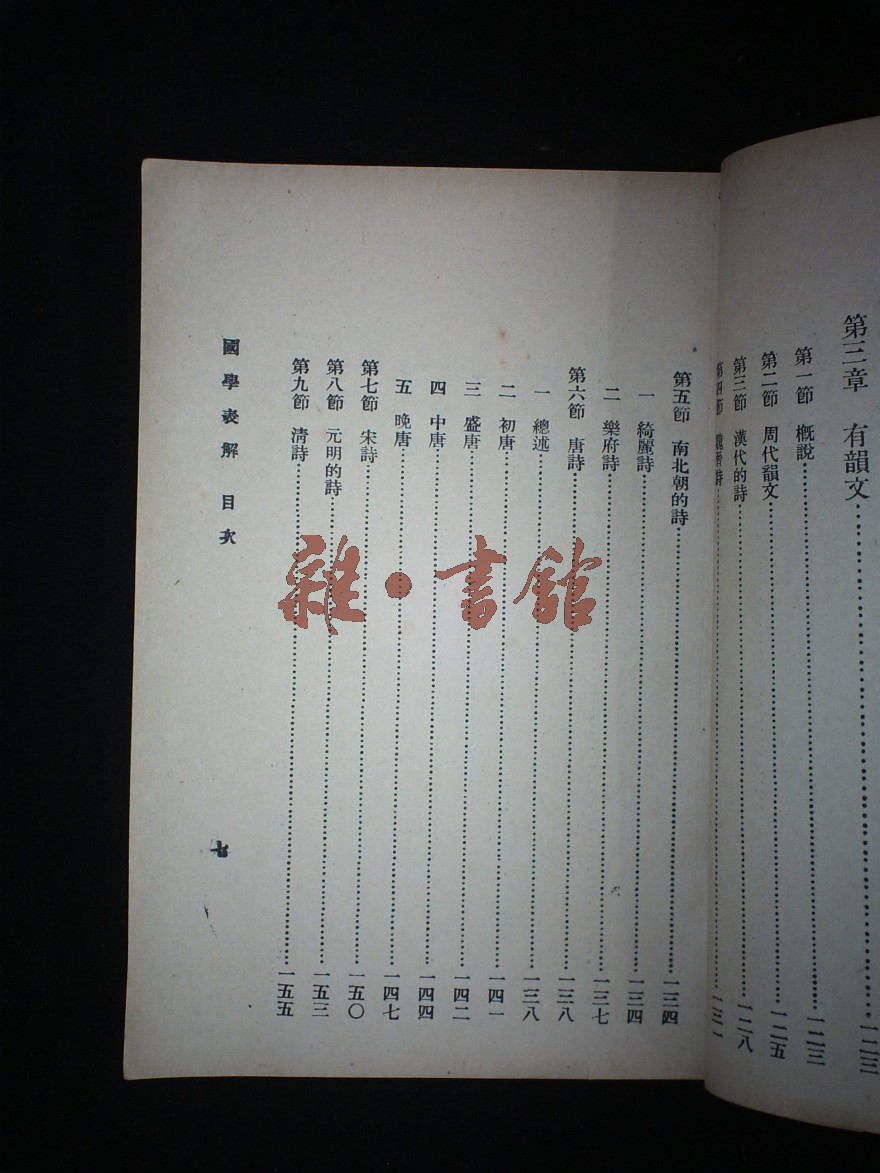 第三章　有韻文……一二三
第一節　概說……一二三
第二節　周代韻文……一二五
第三節　漢代的詩……一二八
第四節　魏晉詩……一三一
第五節　南北朝的詩……一三四
一　綺麗詩……一三四
二　樂府詩……一三七
第六節　唐詩……一三八
一　總述……一三八
二　初唐……一四一
三　盛唐……一四二
四　中唐……一四四
五　晚唐……一四七
第七節　宋詩……一五〇
第八節　元明的詩……一五三
第九節　清詩……一五五
國學表解　目次
雜·書館